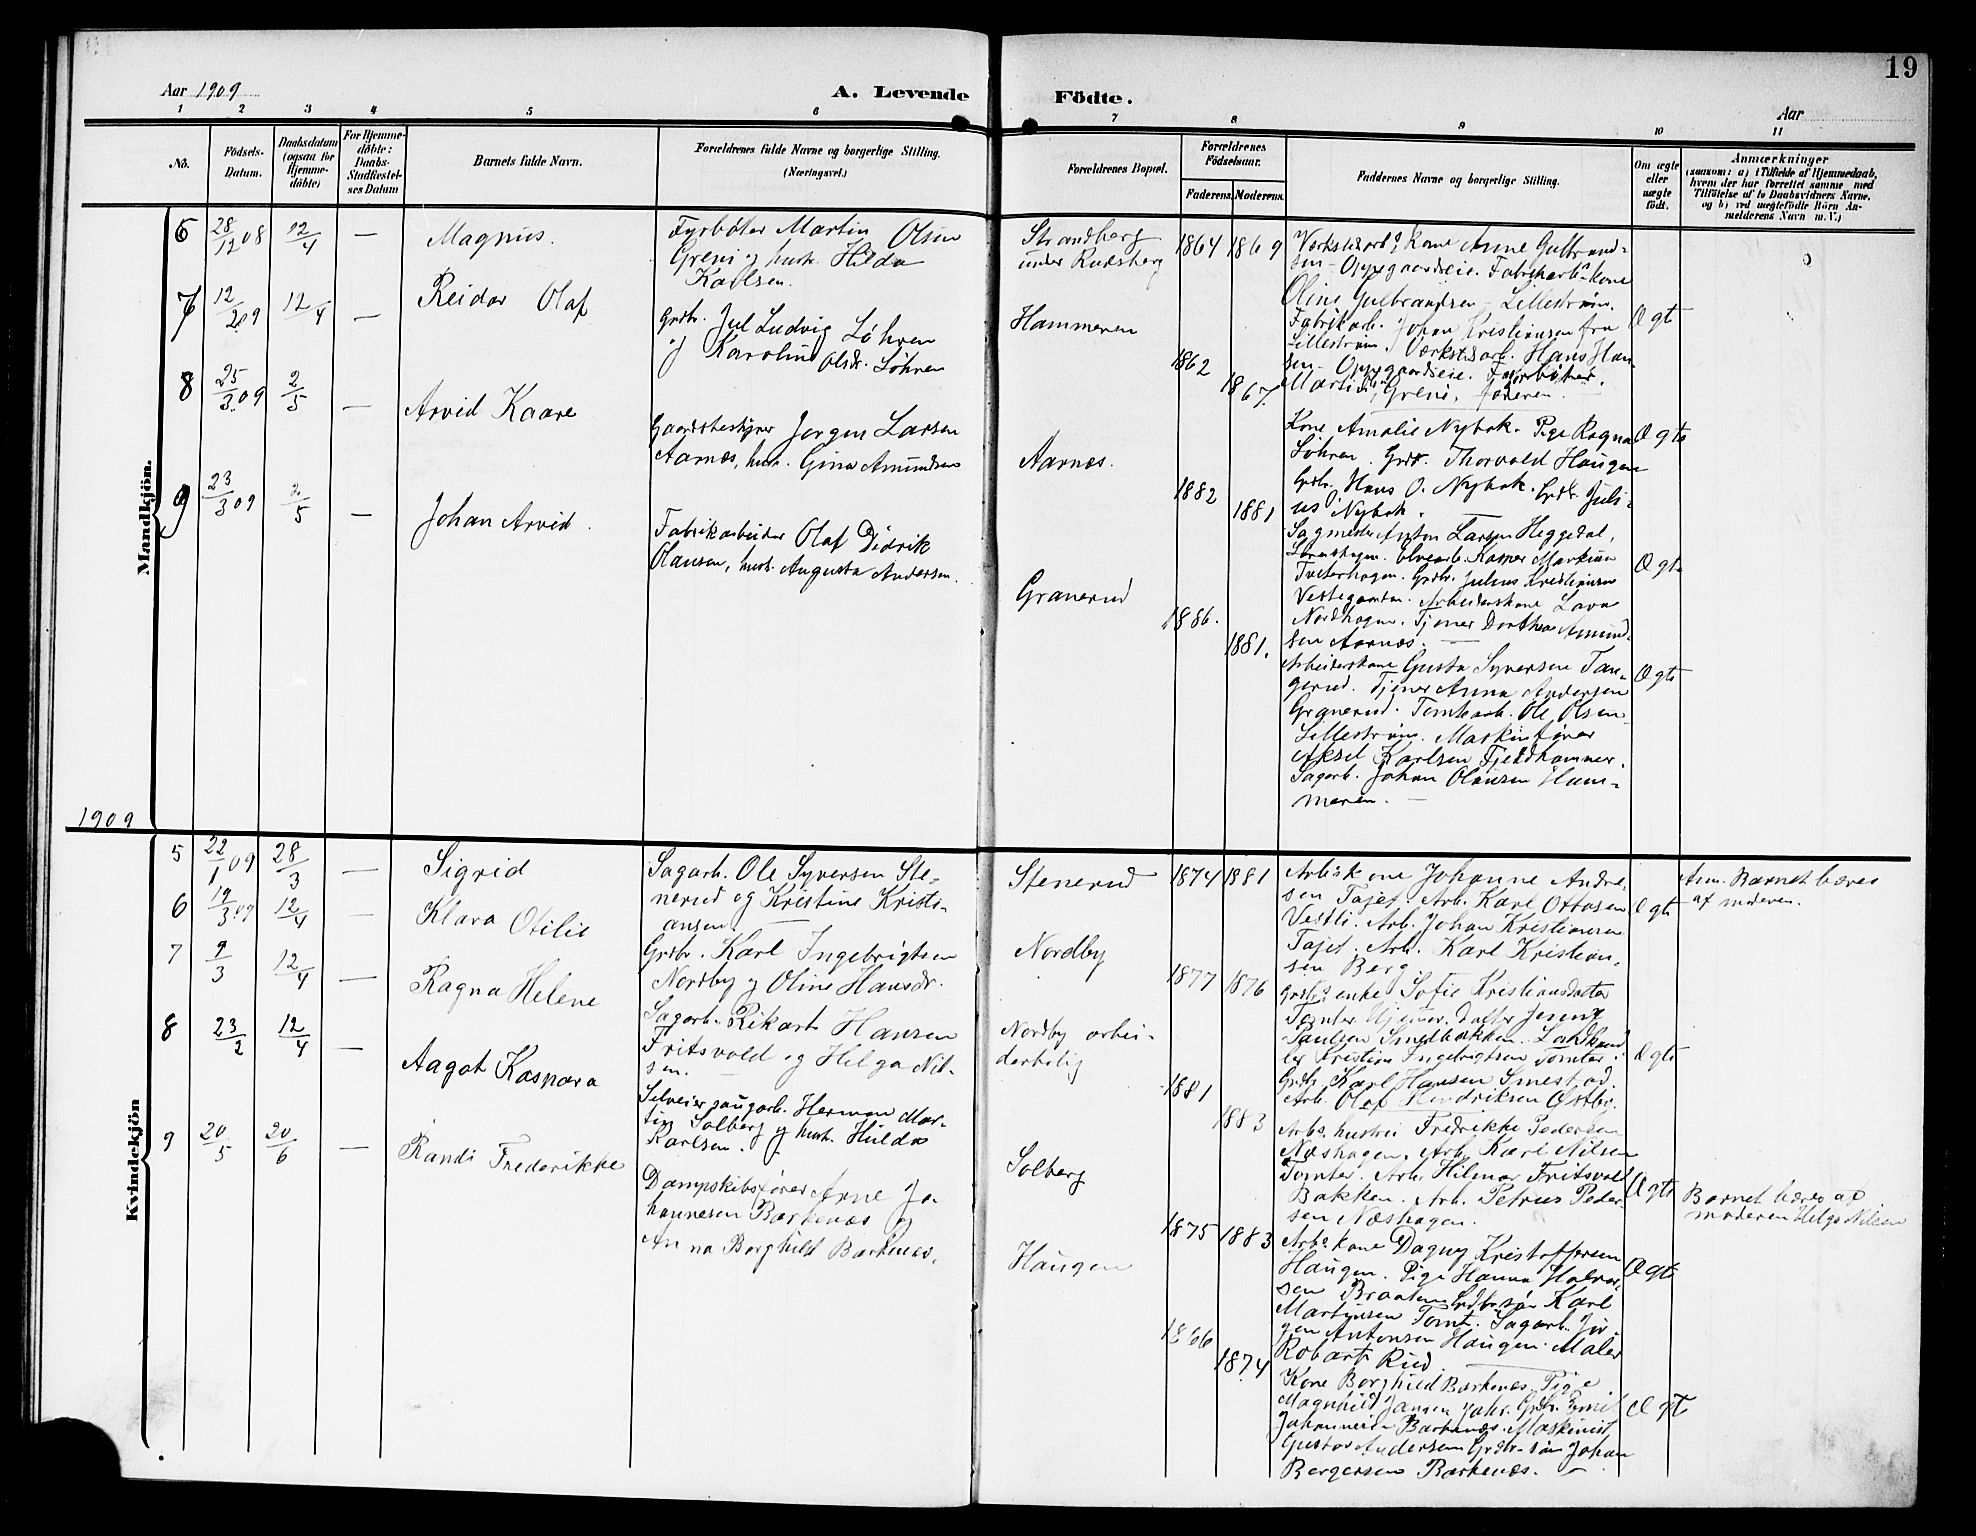 19
Aar 1909
A. Levende
Födte.
Aar
1 2 3 4 5 6 7 8 9 10 11
No.
Födsels-
Datum.
Daabsdatum
(ogsaa for
Hjemme-
döbte)
For Hjemme-
döbte:
Daabs-
Stadfæstel-
ses Datum
Barnets fulde Navn.
Forældrenes fulde Navne og borgerlige Stilling.
(Næringsvei.)
Forældrenes Bopæl.
Forældrenes
Födselsaar.
Faderens.
Moderens.
Faddernes Navne og borgerlige Stilling.
Om ægte
eller
uægte
födt.
Anmærkninger
(saasom: a) i Tilfælde af Hjemmedaab,
hvem der har forrettet samme, med
Tilföielse af to Daabsvidners Navne.
og b) ved uægtefödte Börn An-
melderens Navn m. V.)
Mandkjön.
6 28/12 08 12/4 — Magnus.
Fyrbøter Martin Olsen
Greni og hustr. Hilda
Karlsen.
Strandberg
under Rudsberg
1864 1869
Værkstedsarb? kone Anne Gulbrand-
sen - Oppegaardseie. Fabrikarb? kone
Oline Gulbrandsen - Lillestrøm.
Fabrikarb. Johan Kristiansen fra
Lillestrøm. Værkstedsarb. Hans Han-
sen - Oppegaardseie. Fyrbøter
Martin Greni, faderen.
Ægt
7 12/2 09 12/4 — Reidar Olaf
Grdbr. Jul Ludvig Løhren
og Karoline Olsdr. Løhren
Hammeren
1862
1867.
Kone Amalie Nybak. Pige Ragna
Løhren. Grdb. Thorvald Haugen
Grdbr. Hans O. Nybak. Grdbr. Juli-
us Nybak.
Ægte
8 25/3 09 2/5 — Arvid Kaare
Gaardsbestyrer Jørgen Larsen
Aarnæs, hustr. Gina Amundsen
Aarnæs.
1882
1881
Sagmester Anton Larsen Heggedal,
Tveterhagen. Grdbr. Julius Kristiansen
Arbeiderskone Lava
Nordhagen. Tjener Dorthea Amund-
sen Aarnæs.
Ægte
9 23/3 09 2/5 — Johan Arvid.
Fabrikarbeider Olaf Didrik
Olausen, hustr. Augusta Andersen.
Granerud
1886.
1881.
Arbeiderskone Gusta Syversen Tan-
gerud. Tjener Anna Andersen
Granerud. Tomtearb. Ole Olsen
Lillestrøm. Maskinfører
Aksel Karlsen Fjeldhammer.
Sagarb. Johan Olausen Ham-
meren.
Ægte
1909
Kvindekjön
5 22/1 09 28/3 — Sigrid
Sagarb. Ole Syversen Ste-
nerud og Kristine Kristi-
ansen
Stenerud
1874 1881
Arb?s kone Johanne Andre-
sen Tajet. Arb. Karl Ottosen
Vestli. Arb. Johan Kristiansen
Tajet. Arb. Karl Kristian-
sen Berg.
Ægte
Anm. Barnet bæres
af moderen.
6 19/3 09 12/4 — Klara Otilie
Grdbr. Karl Ingebrigtsen
Nordby og Oline Hansdr.
Nordby
1877 1876
Grdbr?s enke Sofie Kristiansdatter
Tomter. Hjemmev. datter Jensine
Paulsen Smedbakken. Landhand-
ler Kristian Ingebrigtsen Tomter.
Grdbr. Karl Hansen Smestad.
Arb. Olaf Hendriksen Østby.
Ægte
7 9/3 12/4 — Ragna Helene
Sagarb. Rikart Hansen
Fritsvold og Helga Nil-
sen.
Nordby arbei-
derbolig
1881
1883
Arb?s hustru Fredrikke Pedersen
Næshagen. Arb. Karl Nilsen
Tomter. Arb. Hilmar Fritsvold
Bakken. Arb. Petrus Peder-
sen Næshagen.
Ægte
Barnet bæres af
moderen Helga Nilsen
8 23/2 12/4 — Aagot Kaspara
Herman Mar-
tin Solberg og hustr. Hulda
Karlsen.
Solberg
1875 1883
Arb?s kone Dagny Kristoffersen
Haugen. Pige Hanna Halvor-
sen Braaten. Grdbr. søn Karl
Martinsen Tomt. Sagarb. Jør-
gen Antonsen Haugen. Maler
Robart Rud.
Ægte
9 20/5 20/6 — Randi Frederikke
Dampskibsfører Arne Jo-
hannesen Bærkenæs og
Anna Borghild Bærkenæs.
Haugen
1866
1874
Kone Borghild Bærkenæs. Pige
Magnhild Jansen Grdbr. Emil
Johannesen Bærkenæs. Maskinist
Gustav Andersen Grdbr. søn Johan
Bergersen Bærkenæs.
Ægt